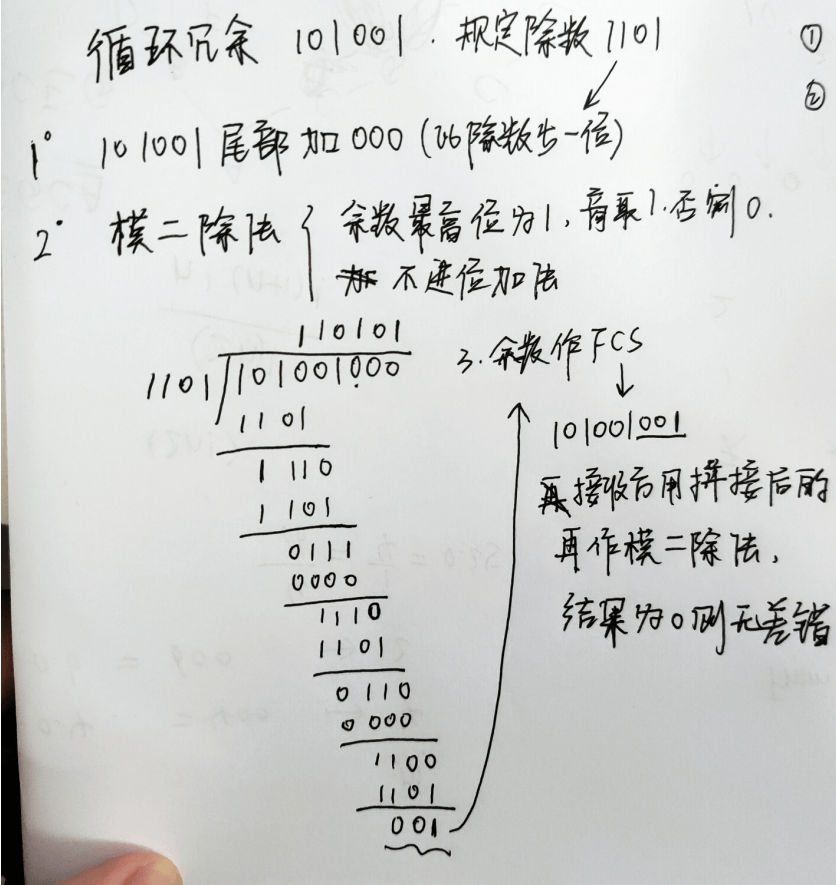 循环冗余 101001. 规定除数 1101
①
②
1° 101001 尾部加 000 (比除数少一位)
2° 模二除法
余数最高位为1, 商取1. 否则0.
不进位加法
110101
1101 101001000
1101
1110
1101
0111
0000
1110
1101
0110
0000
1100
1101
001
3. 余数作FCS
101001001
接收后用拼接后的
再作模二除法,
结果为0则无差错